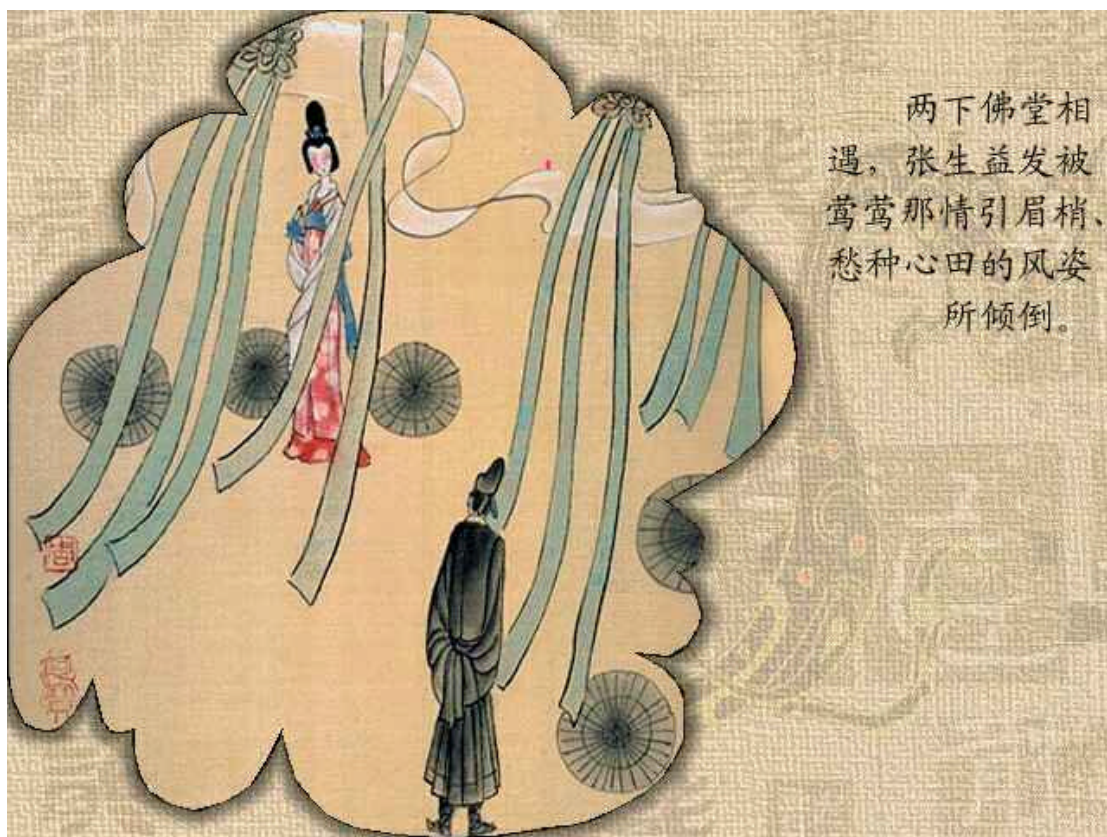 两下佛堂相
遇，张生益发被
莺莺那情引眉梢、
愁种心田的风姿
所倾倒。